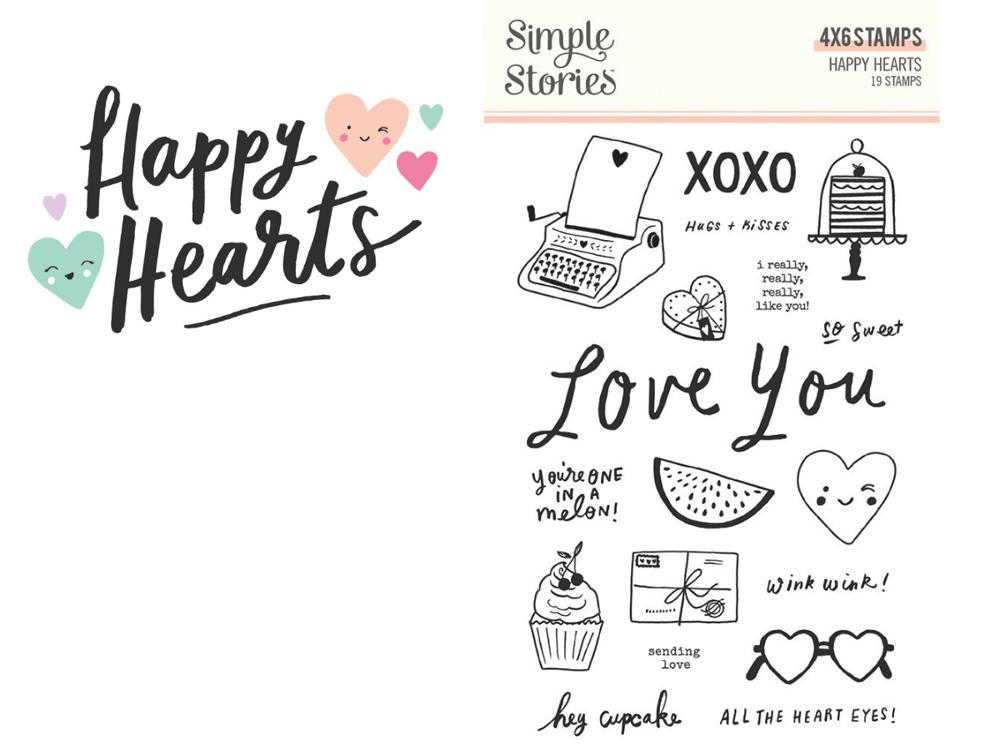 Happy
Hearts
Simple
Stories
4X6 STAMPS
HAPPY HEARTS
19 STAMPS
XOXO
HUGS + KISSES
i really,
really,
really,
like you!
so sweet
Love You
you're ONE
IN A
melon!
wink wink!
sending
love
hey cupcake
ALL THE HEART EYES!